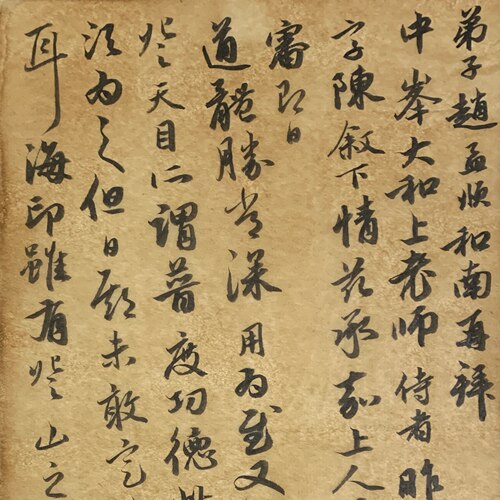 弟子趙孟頫和南再拜
中峯大和上老師侍者昨
字陳敘下情茲承嘉上人
審即日
道體勝常深用為慰又
於天目所謂普度功德
須為之但日辰未敢定
耳海印雖有於山之